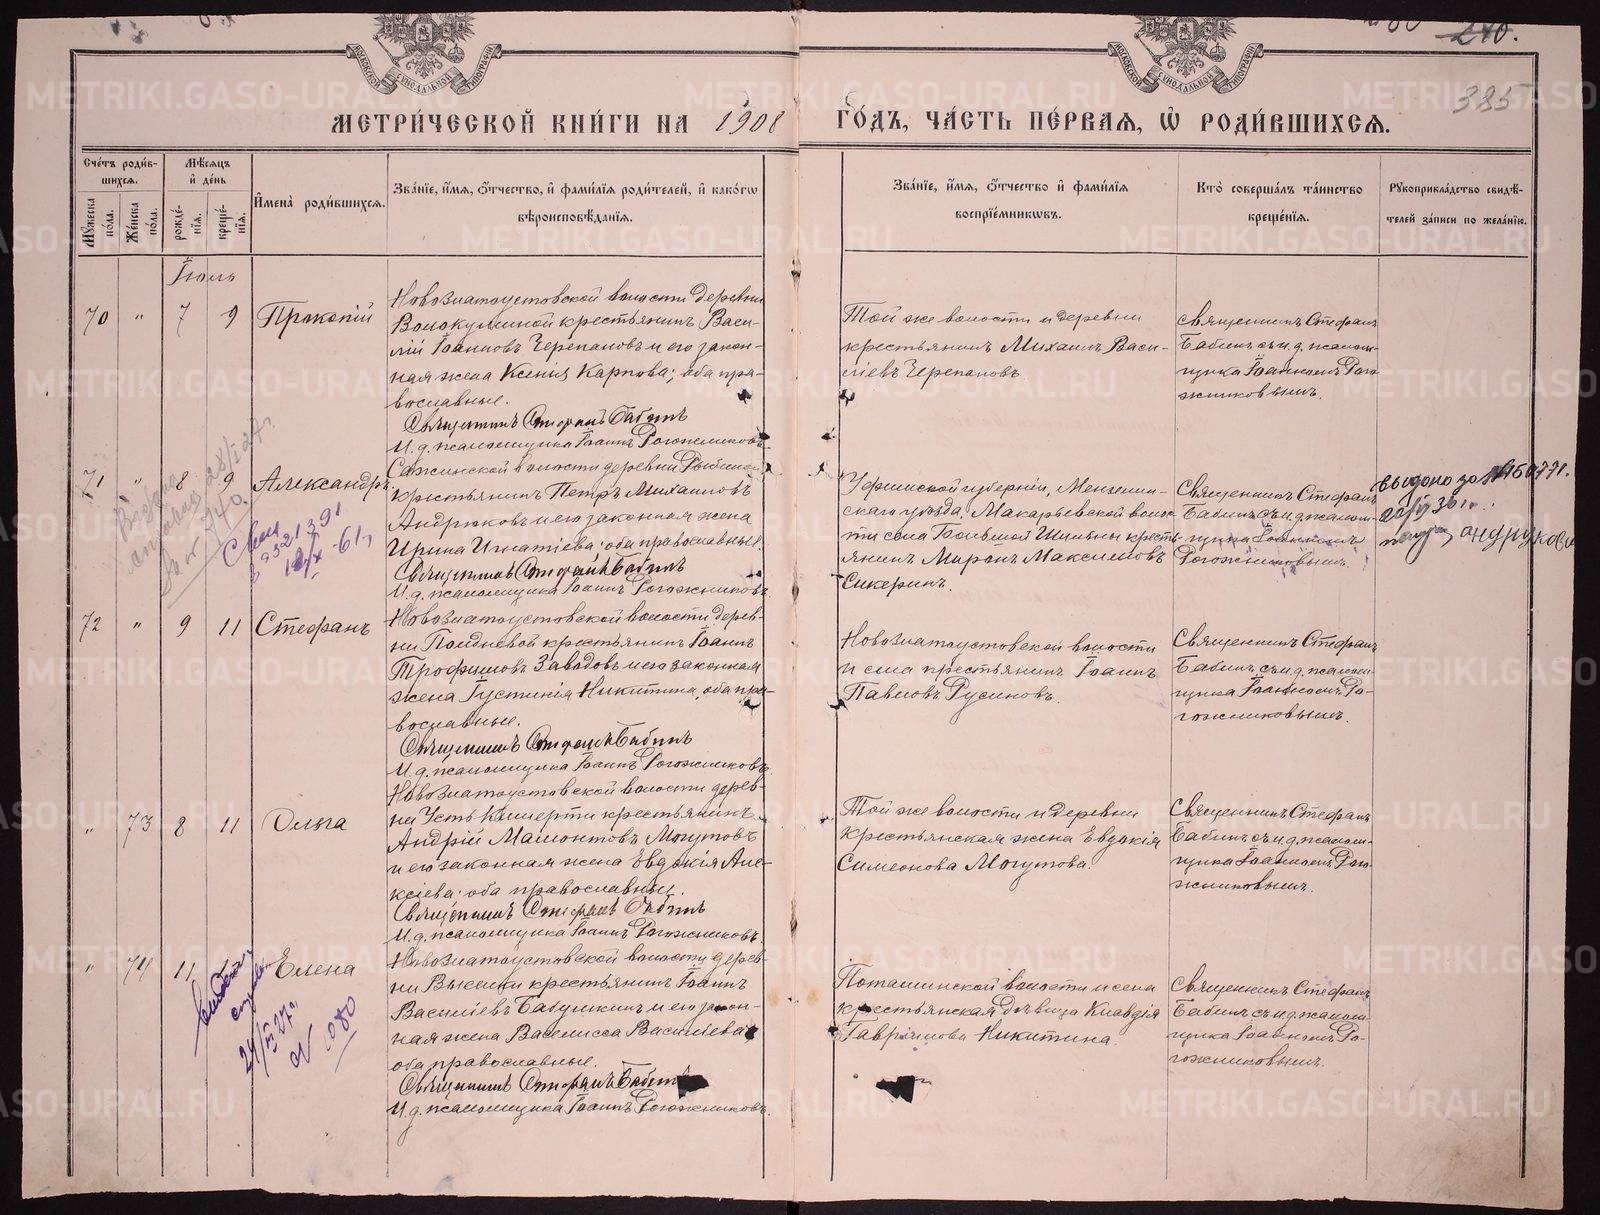 240.
385
МОСКОВСКОЙ СѴНОДАЛЬНОЙ ТИПОГРАФІИ
МОСКОВСКОЙ СѴНОДАЛЬНОЙ ТИПОГРАФІИ
МЕТРИ́ЧЕСКОЙ КНИ́ГИ НА 1908 ГО́ДЪ, ЧА́СТЬ ПЕ́РВАЯ, Ѡ РОДИ́ВШИХСЯ.
Сче́тъ роди́в-
шихся.
Мѣ́сяцъ
и де́нь
Имена̀ роди́вшихся.
Зва́нїе, и́мя, о́тчество, и фами́лїя роди́телей, и како́гѡ
вѣроисповѣ́данїя.
Зва́нїе, и́мя, о́тчество и фами́лїя
воспрїе́мниковъ.
Кто̀ соверша́лъ та́инство
креще́нїя.
Рꙋкоприкла́дство свидѣ́-
телей за́писи по жела́нїю.
Мꙋ́жеска
по́ла.
Же́нска
по́ла.
рожде́-
нїя.
креще́-
нїя.
Іюль
70 " 7 9 Прокопій
Новозлатоустовской волости деревни
Волокушиной крестьянинъ Васи-
лій Іоанновъ Черепановъ и его закон-
ная жена Ксенія Карпова; оба пра-
вославные.
Священникъ Стефанъ Бабинъ
И. д. псаломщика Іоаннъ Рогожниковъ
Той же волости и деревни
крестьянинъ Михаилъ Васи-
ліевъ Черепановъ.
Священникъ Стефанъ
Бабинъ съ и. д. псалом-
щика Іоанномъ Рого-
жниковымъ.
71 " 8 9 Александръ
Сажинской волости деревни Рыбиной
крестьянинъ Петръ Михаиловъ
Андрюковъ и его законная жена
Ирина Игнатіева; оба православные.
Священникъ Стефанъ Бабинъ
И. д. псаломщика Іоаннъ Рогожниковъ
Уфимской губерніи, Мензелин-
скаго уѣзда, Макарьевской волос-
ти села Большой Шильны кресть-
янинъ Миронъ Максимовъ
Сикеринъ.
Священникъ Стефанъ
Бабинъ съ и. д. псалом-
щика Іоанномъ
Рогожниковымъ.
72 " 9 11 Стефанъ
Новозлатоустовской волости дерев-
ни Полдневой крестьянинъ Іоаннъ
Трофимовъ Заводовъ и его законная
жена Іустинія Никитина, оба пра-
вославные.
Священникъ Стефанъ Бабинъ
И. д. псаломщика Іоаннъ Рогожниковъ.
Новозлатоустовской волости
и села крестьянинъ Іоаннъ
Павловъ Русиновъ.
Священникъ Стефанъ
Бабинъ съ и. д. псалом-
щика Іоанномъ Ро-
гожниковымъ.
" 73 8 11 Ольга
Новозлатоустовской волости дерев-
ни Усть Кишерти крестьянинъ
Андрій Мамонтовъ Могутовъ
и его законная жена Евдокія Але-
ксіева; оба православные.
Священникъ Стефанъ Бабинъ
И. д. псаломщика Іоаннъ Рогожниковъ.
Той же волости и деревни
крестьянская жена Евдокія
Симеонова Могутова.
Священникъ Стефанъ
Бабинъ съ и. д. псалом-
щика Іоанномъ Рого-
жниковымъ.
" 74 11 Елена
Новозлатоустовской волости дерев-
ни Выселки крестьянинъ Іоаннъ
Василіевъ Бабушкинъ и его закон-
ная жена Василисса Василіева;
оба православные.
Священникъ Стефанъ Бабинъ
И. д. псаломщика Іоаннъ Рогожниковъ.
Поташинской волости и села
крестьянская дѣвица Клавдія
Гавріилова Никитина.
Священникъ Стефанъ
Бабинъ съ и. д. псалом-
щика Іоанномъ Ро-
гожниковымъ.
METRIKI.GASO-URAL.RU